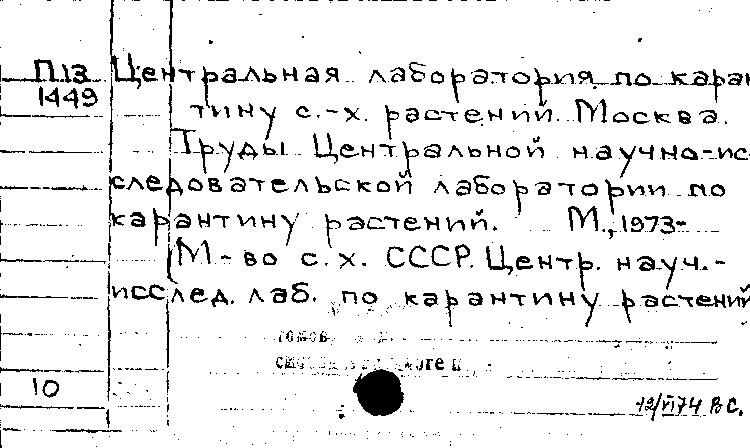 П13 Центральная лаборатория по каран
1449 тину с.-х. растений. Москва.
Труды Центральной научно-ис
следовательской лаборатории по
карантину растений. М., 1973-
М-во с.х. СССР. Центр. науч.-
исслед. лаб. по карантину растений
10
12/VI74 ВС.